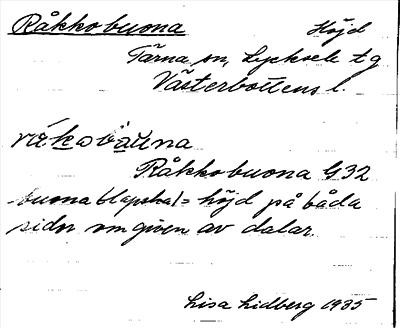 Råkkobuona Höjd
Tärna sn, Lycksele tg
Västerbottens l.
Råkkobuona G32
buona (lapska) = höjd på båda
sidor omgiven av dalar.
Lisa Lidberg 1935